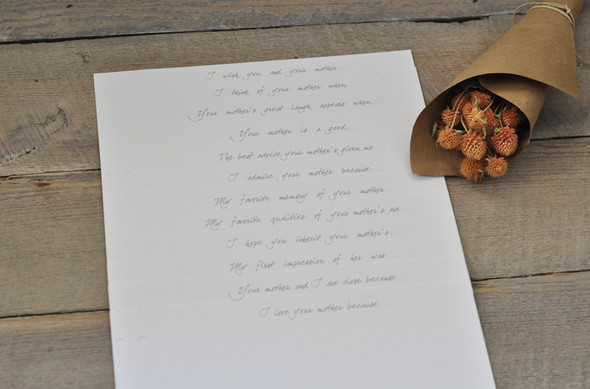 I wish you and your mother...
I think of your mother when...
Your mother's great laugh appears when...
Your mother is a good...
The best advice your mother's given me...
I admire your mother because...
My favorite memory of your mother...
My favorite qualities of your mother's are...
I hope you inherit your mother's...
My first impression of her was...
Your mother and I are close because...
I love your mother because...